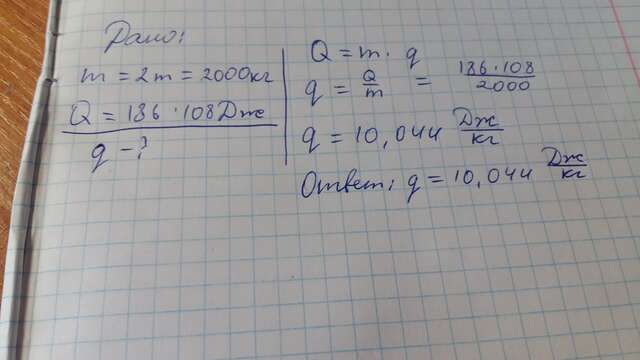 Дано:
m = 2т = 2000кг
Q = 186 · 108 Дж
q - ?
Q = m · q
q = Q/m = 186 · 108/2000
q = 10,044 Дж/кг
Ответ: q = 10,044 Дж/кг